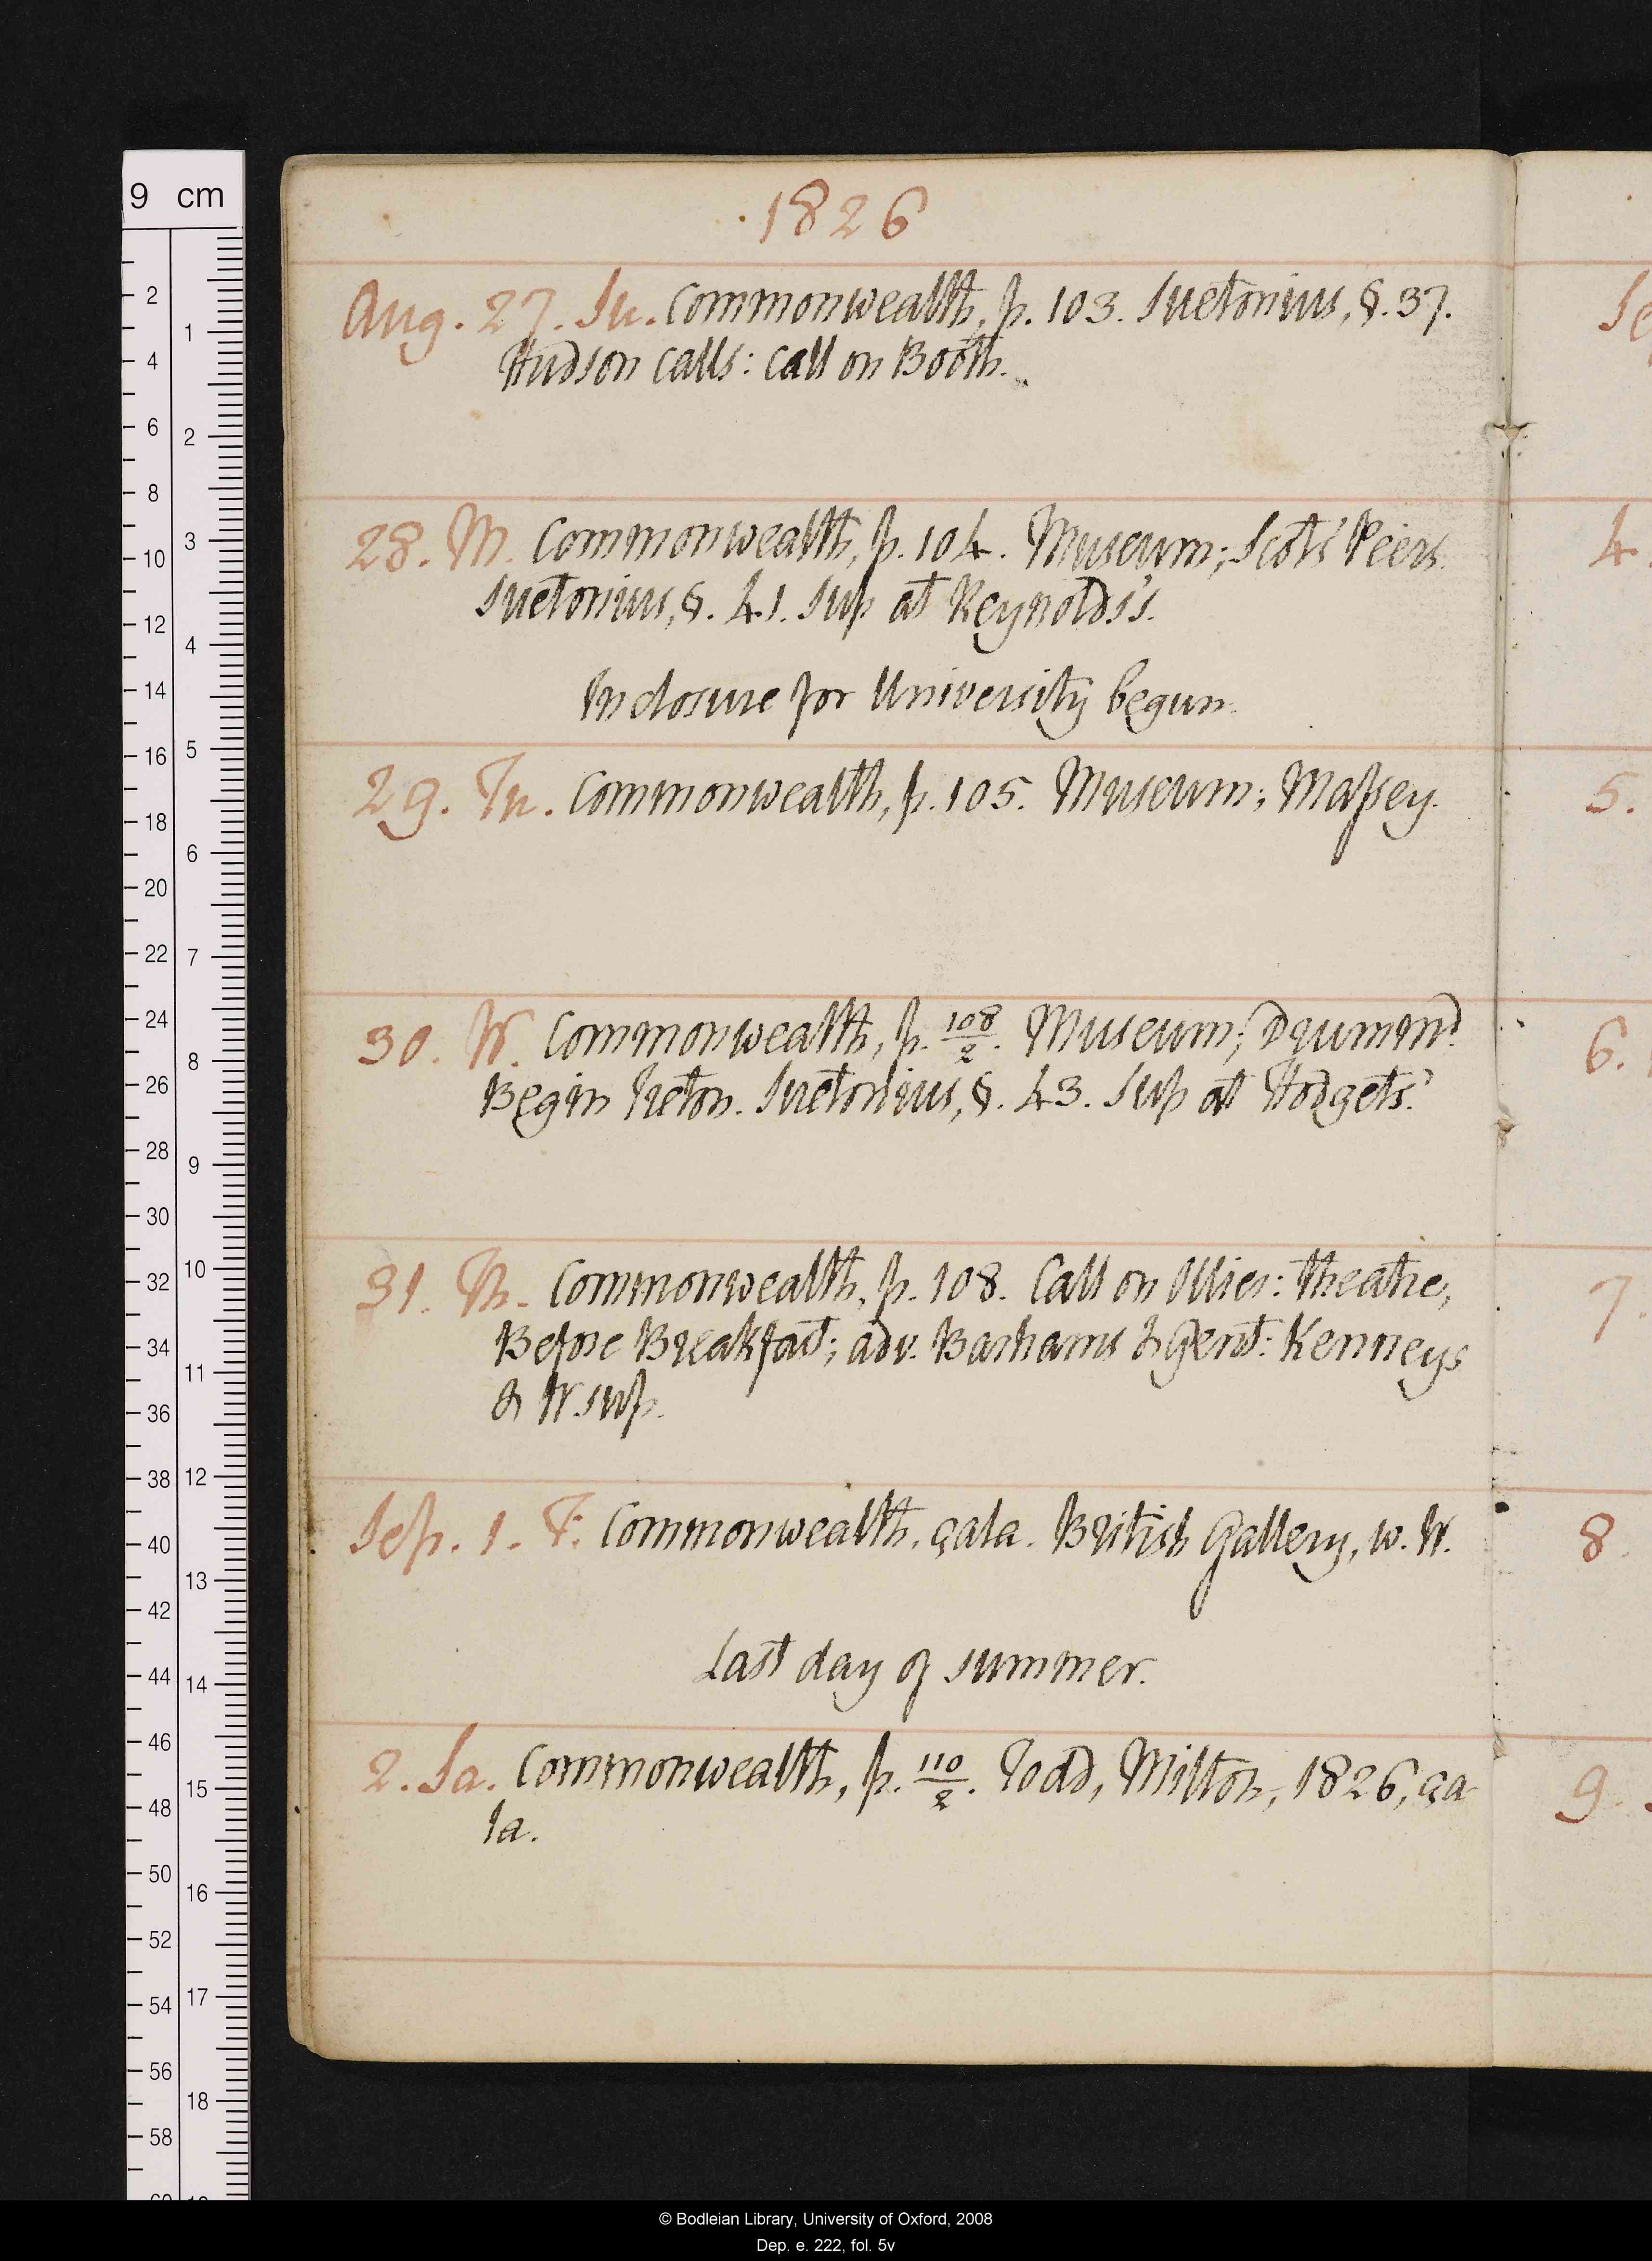 1826
Aug. 27. Su. Commonwealth, p. 103. Suetonius, §. 37.
Hudson calls: call on Booth.
28. M. Commonwealth, p. 104. Museum; Scots' Peers.
Suetonius, §. 41. Sup at Reynolds's.
Inclosure for University begun.
29. Tu. Commonwealth, p. 105. Museum; Massey.
30. W. Commonwealth, p. 108/2. Museum; Drummd.
Begin Ireton. Suetonius, §. 43. Sup at Hodgets'
31. Th. Commonwealth, p. 108. Call on Ollier: theatre,
Before Breakfast; adv. Barhams & Gent: Kenneys
& W. sup.
Sep. 1. F. Commonwealth, çala. British Gallery, w. W.
Last day of summer.
2. Sa. Commonwealth, p. 110/2. Todd, Milton, 1826, ça
la.
Se
4.
5.
6.
7.
8.
9.
9 cm
2 4 6 8 10 12 14 16 18 20 22 24 26 28 30 32 34 36 38 40 42 44 46 48 50 52 54 56 58 60
1 2 3 4 5 6 7 8 9 10 11 12 13 14 15 16 17 18
© Bodleian Library, University of Oxford, 2008
Dep. e. 222, fol. 5v